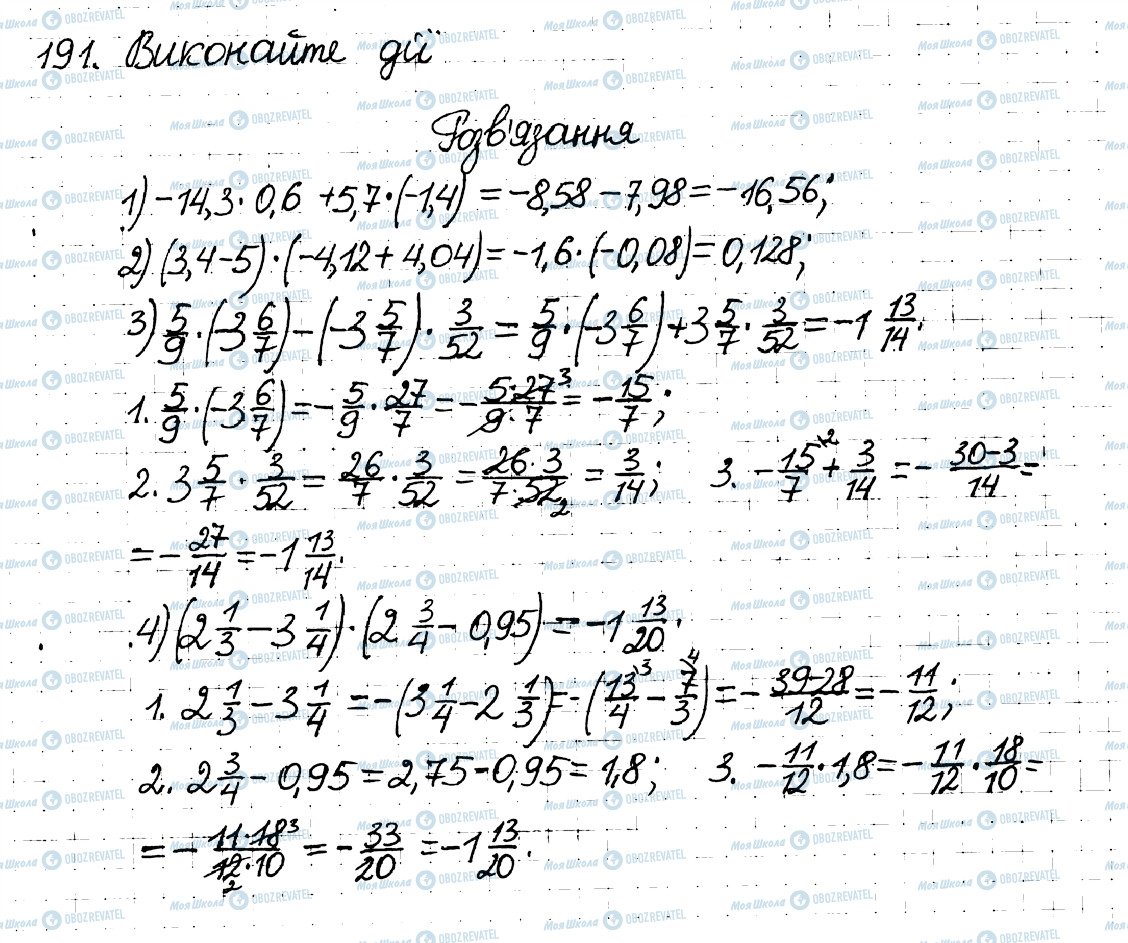 191. Виконайте дії
Розв'язання
1) -14,3 · 0,6 + 5,7 · (-1,4) = -8,58 - 7,98 = -16,56;
2) (3,4-5) · (-4,12 + 4,04) = -1,6 · (-0,08) = 0,128;
3) 5/9 · (-3 6/7) - (-3 5/7) · 3/52 = 5/9 · (-3 6/7) + 3 5/7 · 3/52 = -1 13/14.
1. 5/9 · (-3 6/7) = - 5/9 · 27/7 = - 5·27³/9·7 = - 15/7;
2. 3 5/7 · 3/52 = 26/7 · 3/52 = 26·3/7·52₂ = 3/14; 3. - 15/7 ⁽² + 3/14 = - 30-3/14 =
= - 27/14 = -1 13/14.
4) (2 1/3 - 3 1/4) · (2 3/4 - 0,95) = -1 13/20.
1. 2 1/3 - 3 1/4 = -(3 1/4 - 2 1/3) = -(13/4 ⁾³ - 7/3 ⁾⁴) = - 39-28/12 = - 11/12;
2. 2 3/4 - 0,95 = 2,75 - 0,95 = 1,8; 3. - 11/12 · 1,8 = - 11/12 · 18/10 =
= - 11·18³/12₂·10 = - 33/20 = -1 13/20.
Моя Школа OBOZREVATEL